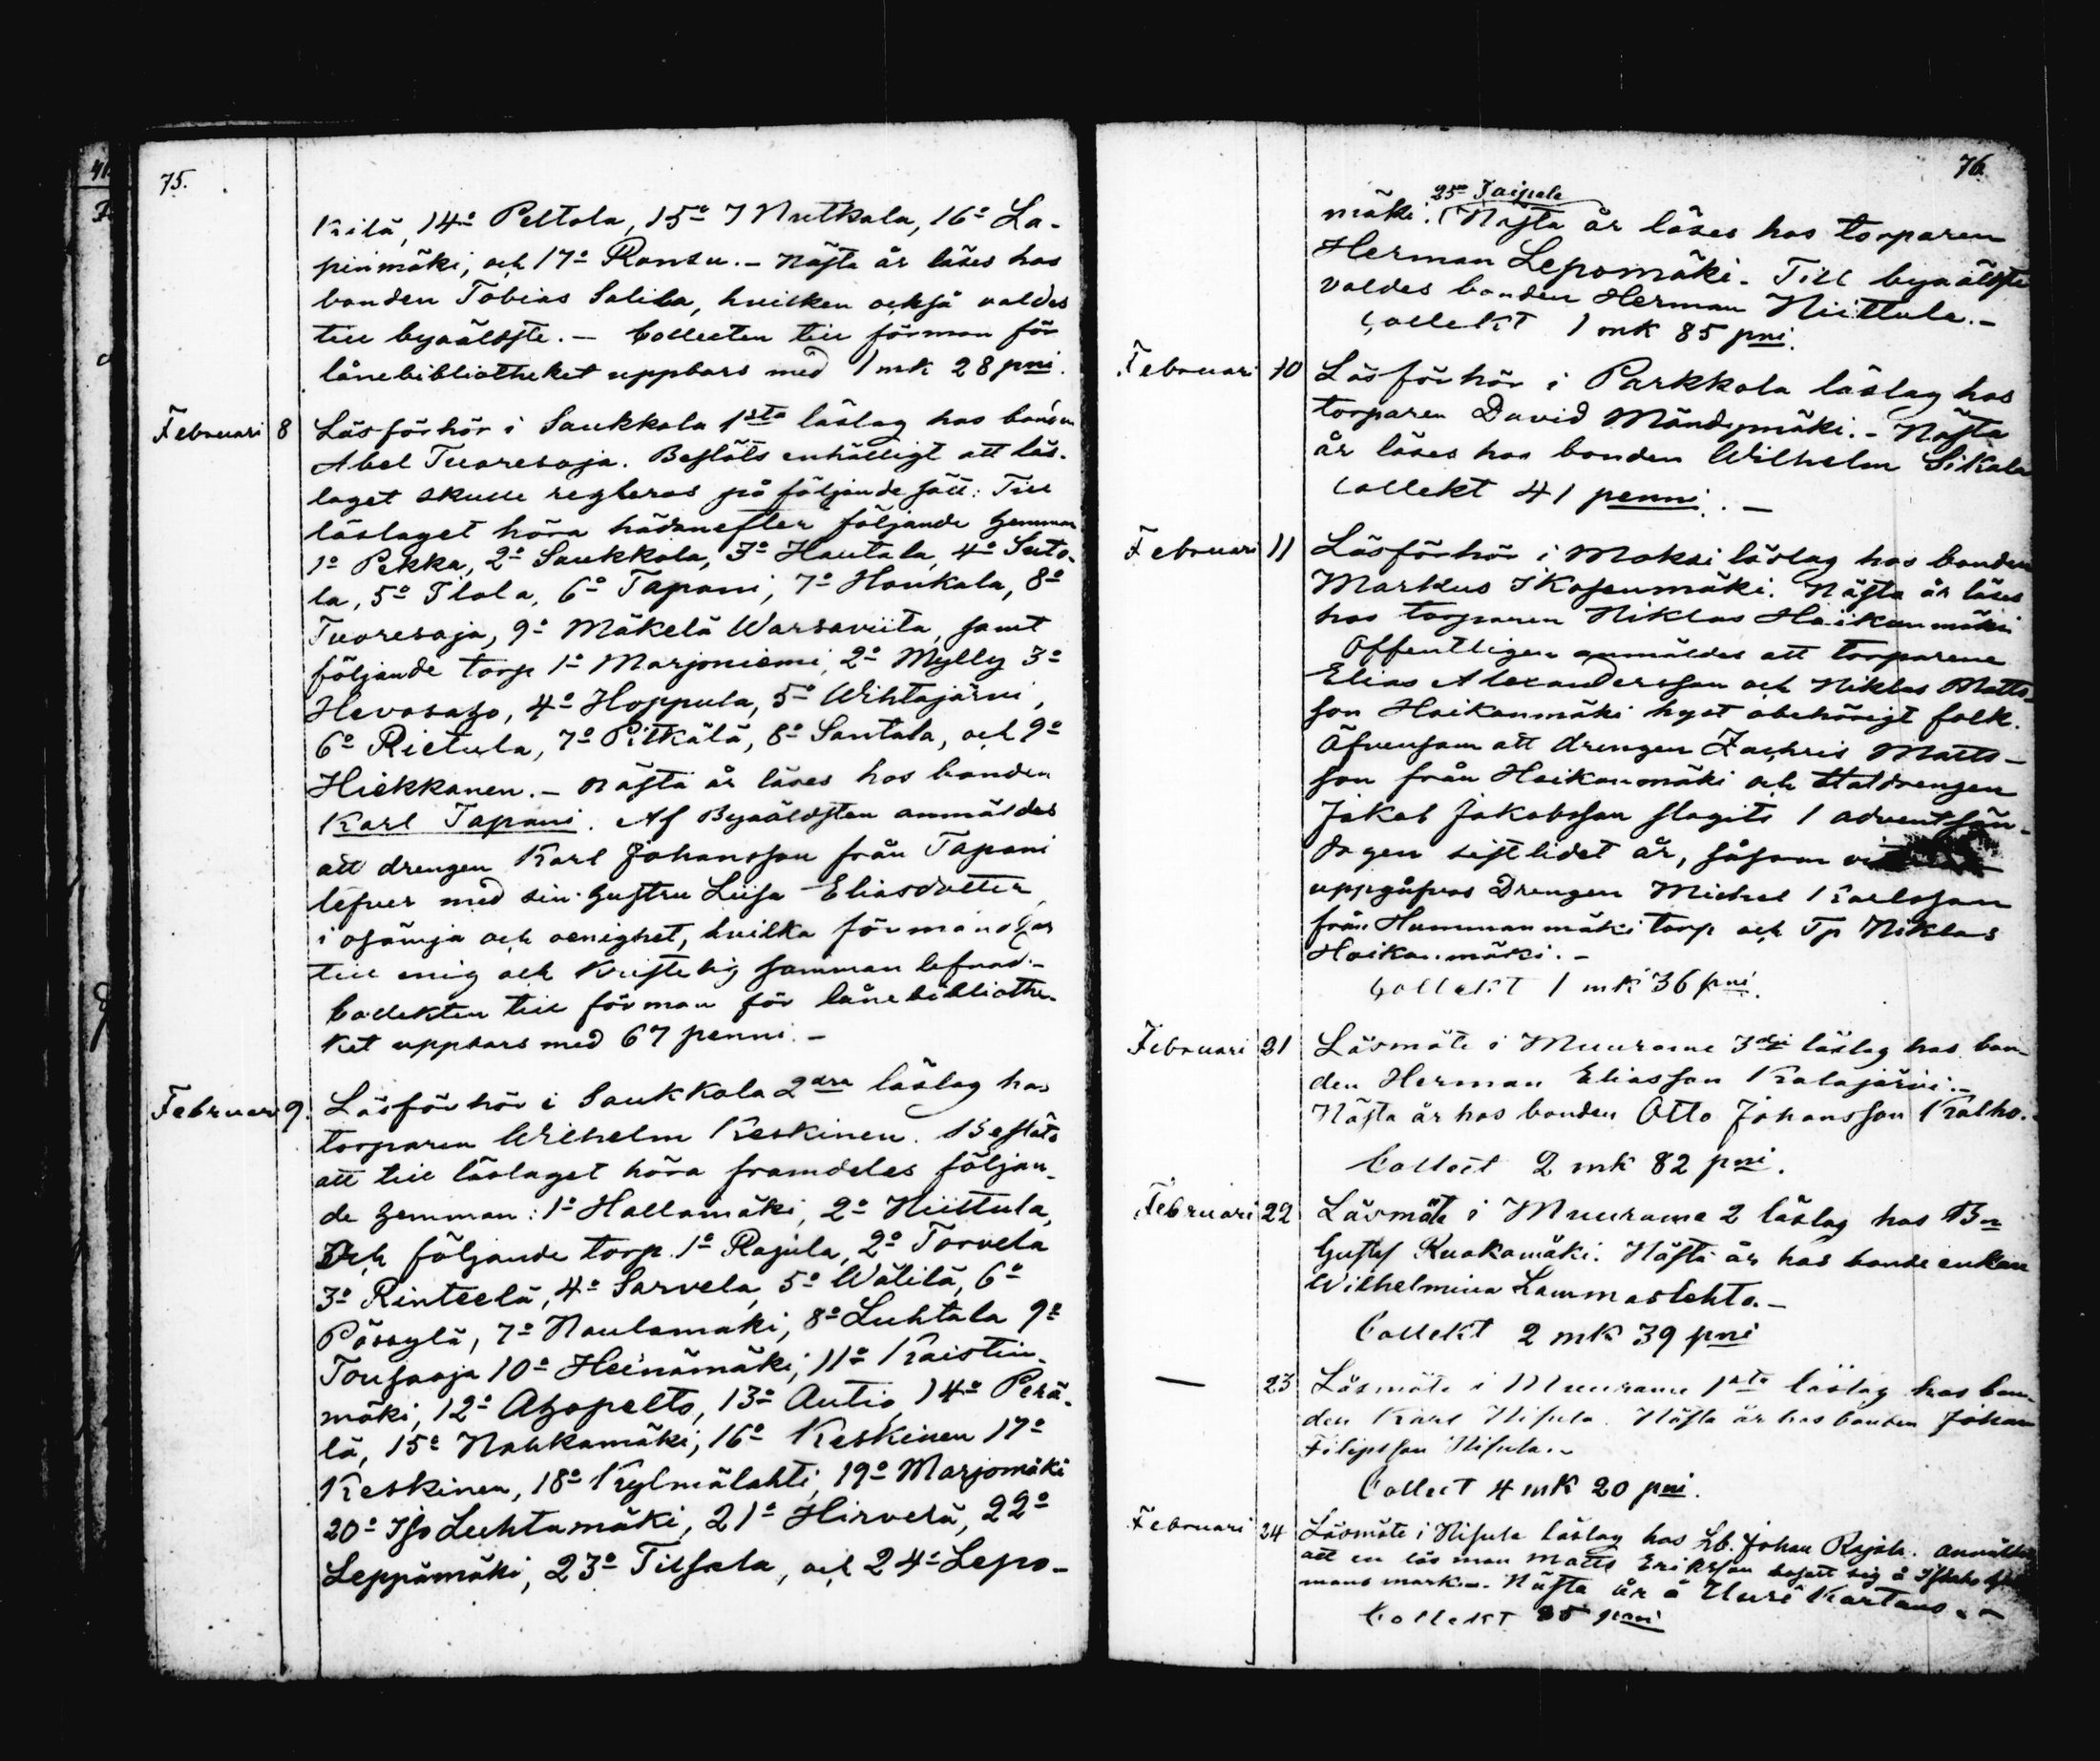 75.
Kilä, 14o Peltola, 15o I Nutkala, 16o La-
pinmäki, och 17o Ransu. - Nästa år läses hos
bonden Tobias Salila, hvilken också valdes
till byaäldste. - Collecten till förmon för
lånebibliotheket uppbars med 1 mk 28 pni.
Februari 8 Läsförhör i Saukkola 1sta läslag hos bonden
Abel Tuoresoja. Beslöts enhälligt att läs-
laget skulle regleras på följande sätt: Till
läslaget höra hädanefter följande hemman
1o Pekka, 2o Saukkola, 3o Hautala, 4o Suto-
la, 5o Ilola, 6o Tapani, 7o Honkala, 8o
Tuoresoja, 9o Mäkelä Warsaviita, samt
följande torp 1o Marjoniemi, 2o Mylly 3o
Hevosaho, 4o Hoppula, 5o Wihtajärvi,
6o Rietula, 7o Pitkälä, 8o Santala, och 9o
Hiekkanen. - Nästa år läses hos bonden
Karl Tapani. Af Byaäldsten anmäldes
att drengen Karl Johansson från Tapani
lefver med sin hustru Liisa Eliasdotter
i osämja och oenighet, hvilka förmanas
till enig och kristelig samman lefnad. -
Collekten till förmon för lånebibliothe-
ket uppbars med 67 penni. -
Februari 9. Läsförhör i Saukkola 2dra läslag hos
torparen Wilhelm Keskinen. Beslöts
att till läslaget höra framdeles följan-
de hemman: 1o Hallamäki, 2o Niittula,
Och följande torp. 1o Rajula, 2o Torvela
3o Rinteelä, 4o Sarvela, 5o Wälilä, 6o
Pässylä, 7o Naulamäki, 8o Luhtala 9o
Tousaaja 10o Heinämäki, 11o Kaistin-
mäki, 12o Ahopelto, 13o Autio, 14o Perä-
lä, 15o Nahkamäki, 16o Keskinen 17o
Keskinen, 18o Kylmälahti, 19o Marjomäki
20o Iso Luhtamäki, 21o Hirvelä, 22o
Leppämäki, 23o Tilsala, och 24o Lepo-
76.
25o Taipale
mäki. Nästa år läses hos torparen
Herman Lepomäki. Till byaäldste
valdes bonden Herman Niittula. -
Collekt 1 mk 85 pni.
Februari 10 Läsförhör i Parkkola läslag hos
torparen David Mändymäki. - Nästa
år läses hos bonden Wilhelm Sikala
Collekt 41 penni. -
Februari 11 Läsförhör i Moksi läslag hos bonden
Markus Ikosenmäki. Nästa år läses
hos torparen Niklas Haikanmäki
Offentligen anmäldes att torparene
Elias Alexandersson och Niklas Matts-
son Haikanmäki hyst obehörigt folk.
Äfvensom att drengen Zachris Matts-
son från Haikanmäki och Statdrengen
Jakob Jakobsson slagits 1 adventsön-
dagen sistlidet år, såsom
uppgåfvos Drengen Michel Karlsson
från Hummanmäki torp och Tp Niklas
Haikanmäki. -
Collekt 1 mk 36 pni.
Februari 21 Läsmöte i Muurame 3dje läslag hos bon-
den Herman Eliasson Kalajärvi. -
Nästa år hos bonden Otto Johansson Kalho. -
Collect 2 mk 82 pni.
Februari 22 Läsmöte i Muurame 2 läslag hos Bn
Gustaf Ruokomäki. Nästa år hos bondeenkan
Wilhelmina Lammaslehto. -
Collekt 2 mk 39 pni
— 23 Läsmöte i Muurame 1sta läslag hos bon-
den Karl Nisula. Nästa år hos bonden Johan
Filipsson Nisula. -
Collect 4 mk 20 pni.
Februari 24 Läsmöte i Nisula läslag hos Lb. Johan Rajala. anmältes
att en lös man Matts Eriksson bosatt sig å
mans mark. - Nästa år å Uusi Kartano. -
Collekt 85 pni